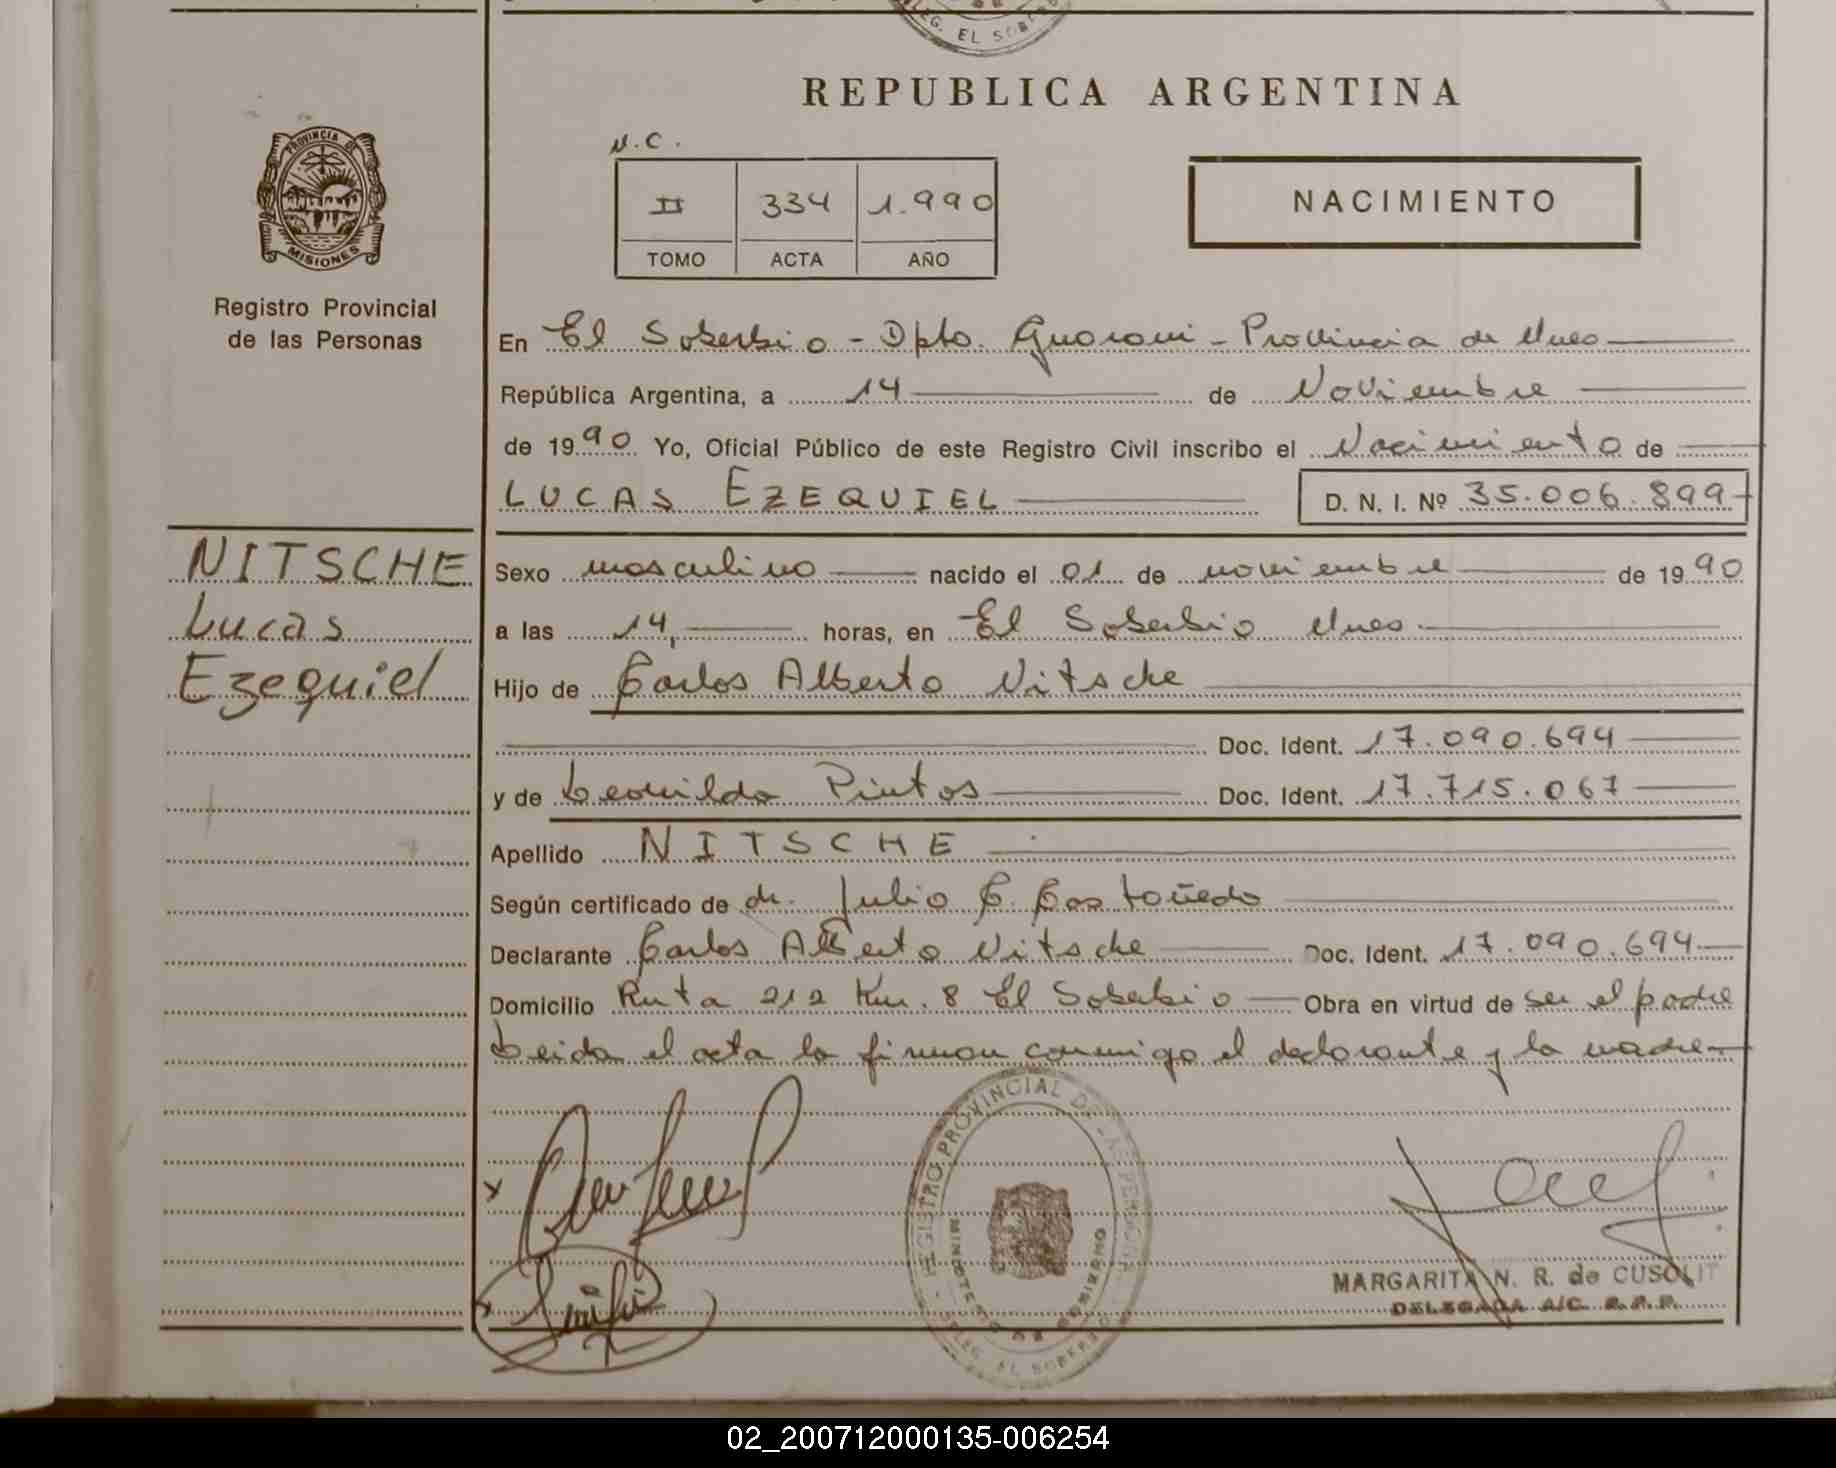 DELEG. EL SOBERBIO
REPUBLICA ARGENTINA
PROVINCIA DE
MISIONES
N.C.
II 334 1.990
TOMO ACTA AÑO
NACIMIENTO
Registro Provincial
de las Personas
En El Soberbio - Dpto. Guarani - Provincia de Mnes
República Argentina, a 14 de Noviembre
de 1990 Yo, Oficial Público de este Registro Civil inscribo el Nacimiento de
LUCAS EZEQUIEL D. N. I. Nº 35.006.899
NITSCHE
Lucas
Ezequiel
Sexo masculino nacido el 01 de noviembre de 1990
a las 14, horas, en El Soberbio Mnes.
Hijo de Carlos Alberto Nitsche
Doc. Ident. 17.090.694
y de Leonilda Pintos Doc. Ident. 17.715.067
Apellido NITSCHE
Según certificado de dr. Julio C. Castañedo
Declarante Carlos Alberto Nitsche Doc. Ident. 17.090.694
Domicilio Ruta 212 Km. 8 El Soberbio Obra en virtud de ser el padre
Leida el acta la firman conmigo el declarante y la madre
REGISTRO PROVINCIAL DE LAS PERSONAS
MINISTERIO DE GOBIERNO
DELEG. EL SOBERBIO
MARGARITA N. R. de CUSOLIT
DELEGADA A/C. R.P.P.
02_200712000135-006254